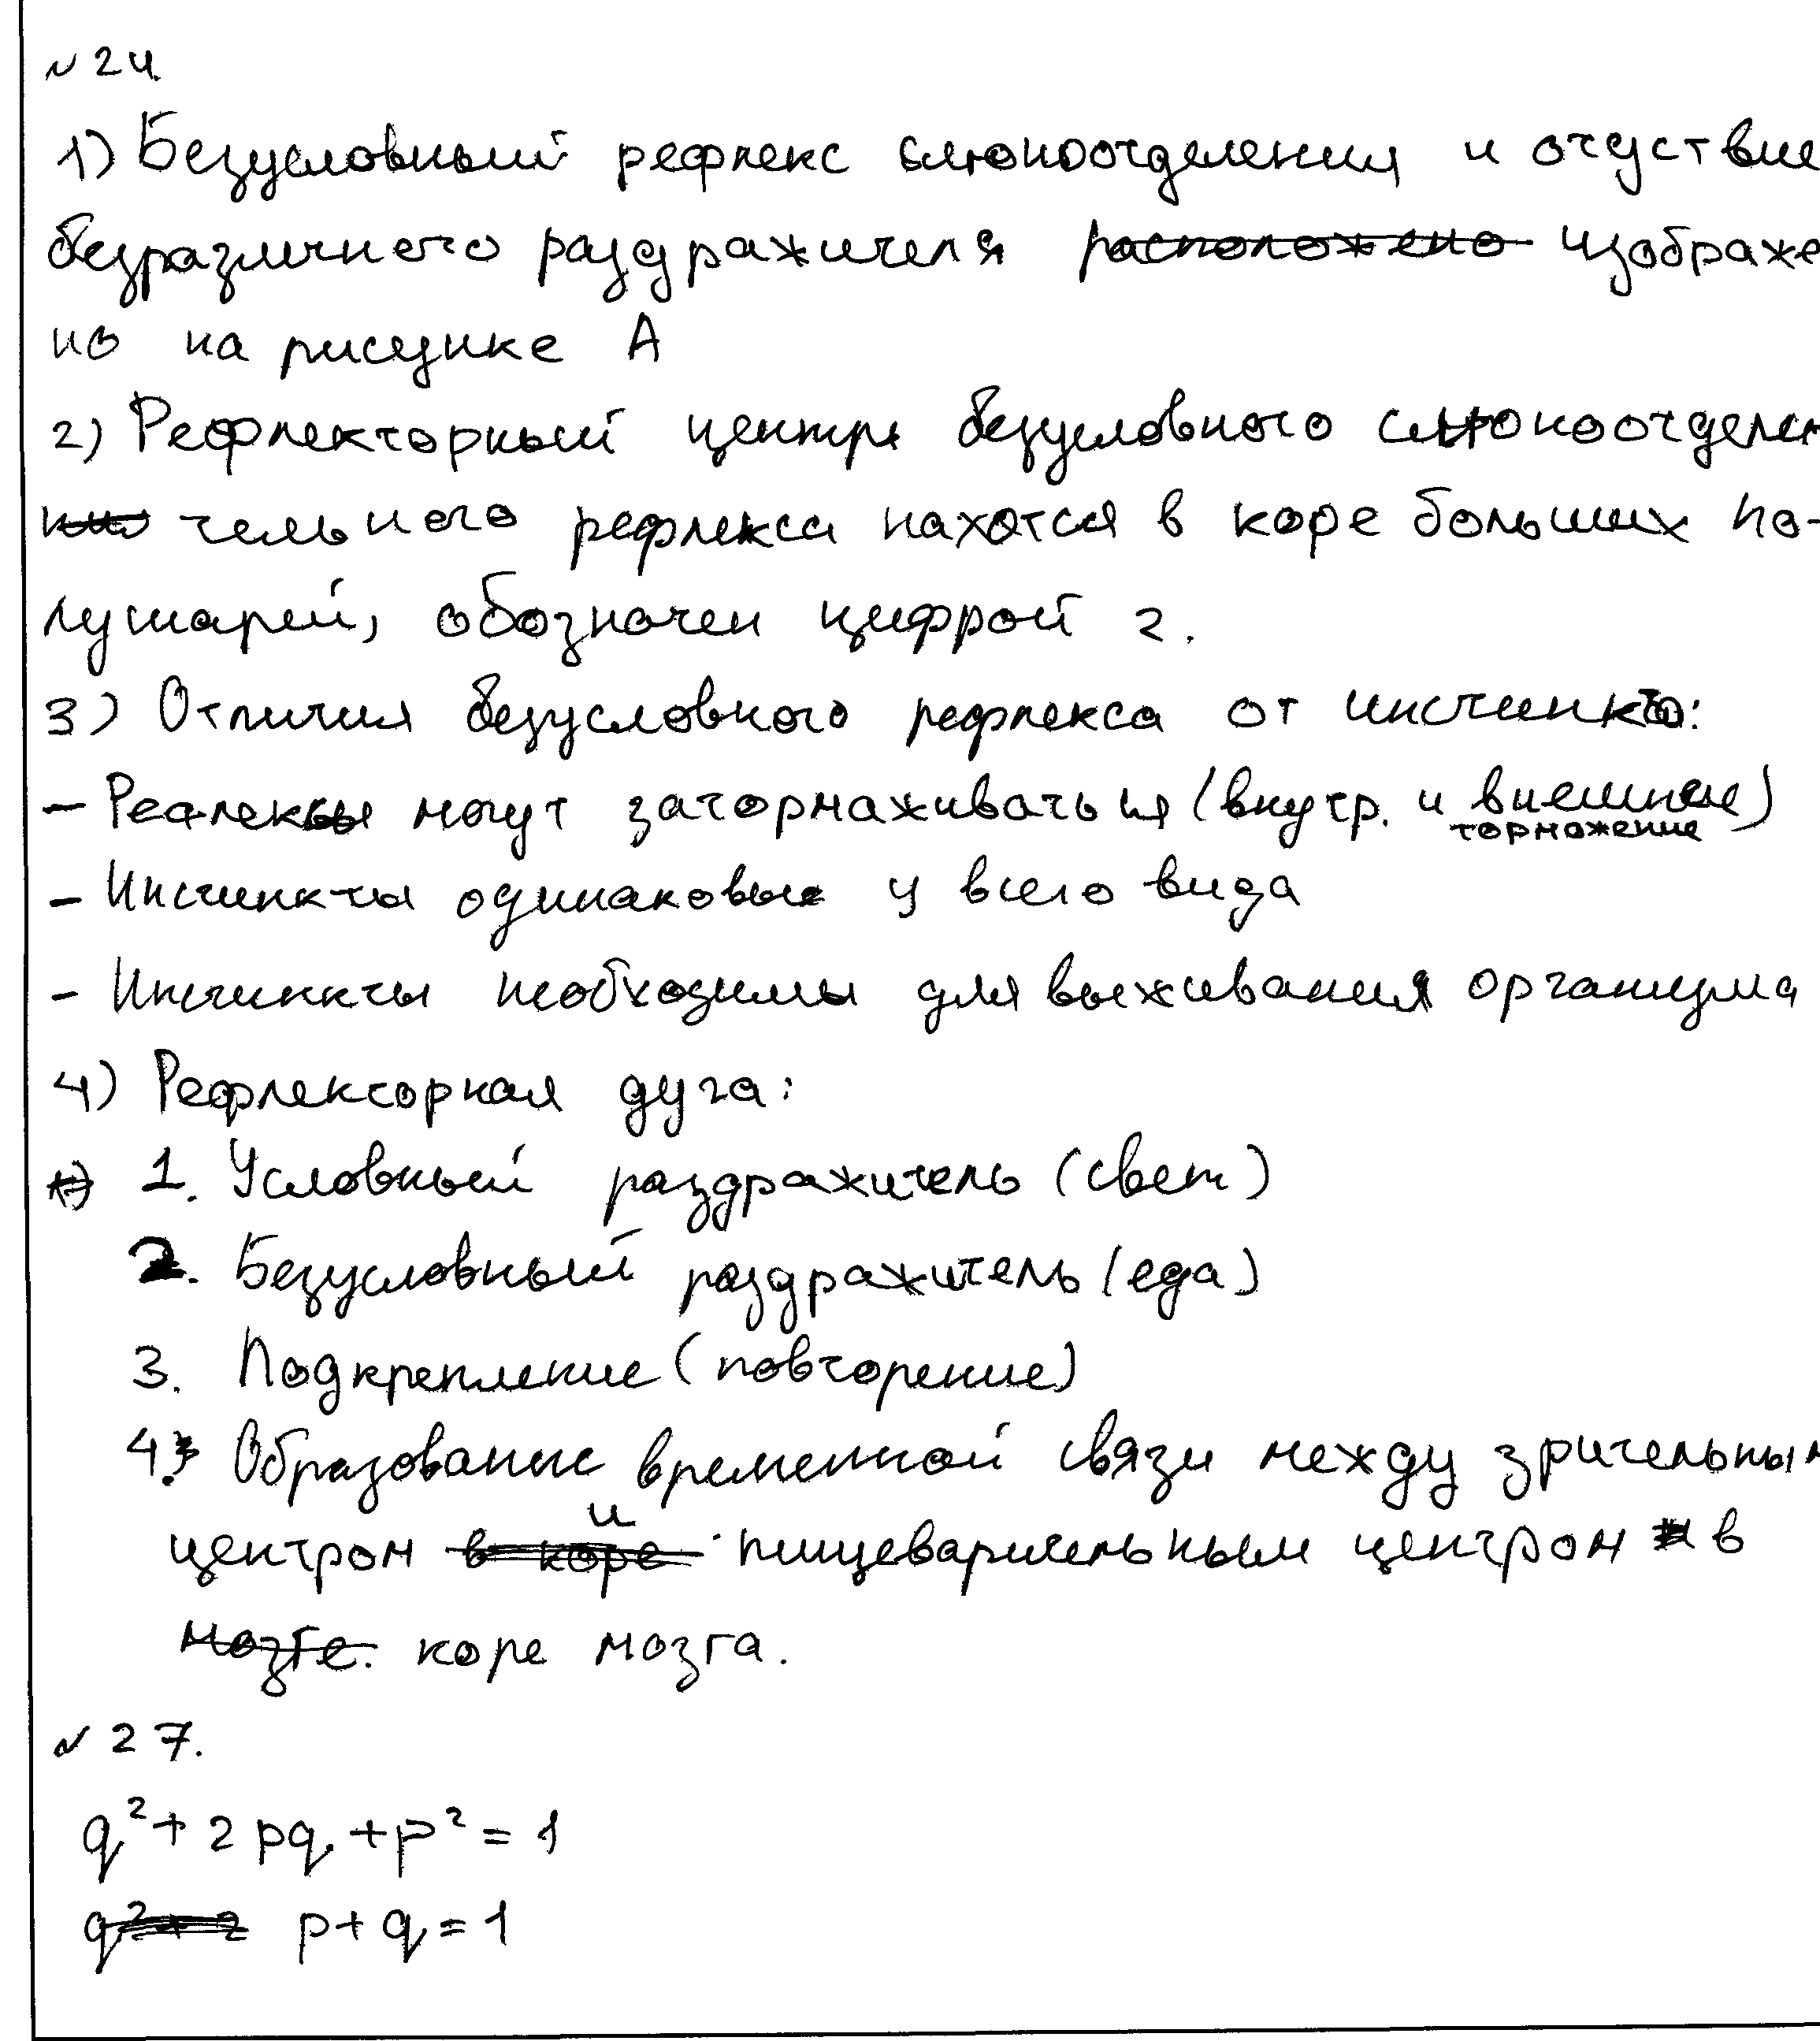 № 24
1) Безусловный рефлекс слюноотделения и отсуствие
безразличного раздражителя расположено изображе
но на рисунке А
2) Рефлекторный центр безусловного слюноотделен
ния тельного рефлекса нахотся в коре больших по-
лушарий, обозначен цифрой 2.
3) Отличия безусловного рефлекса от инстинкта:
- Рефлексы могут затормаживаться (внутр. и внешнее)
торможение
- Инстинкты одинаковые у всего вида
- Инстинкты необходимы для выживания организма
4) Рефлекторная дуга:
1. Условный раздражитель (свет)
2. Безусловный раздражитель (еда)
3. Подкрепление (повторение)
4. Образование временной связи между зрительным
центром в коре и пищеварительным центром в
мозге. коре мозга.
№ 27.
q² + 2pq + p² = 1
q² + 2 p + q = 1